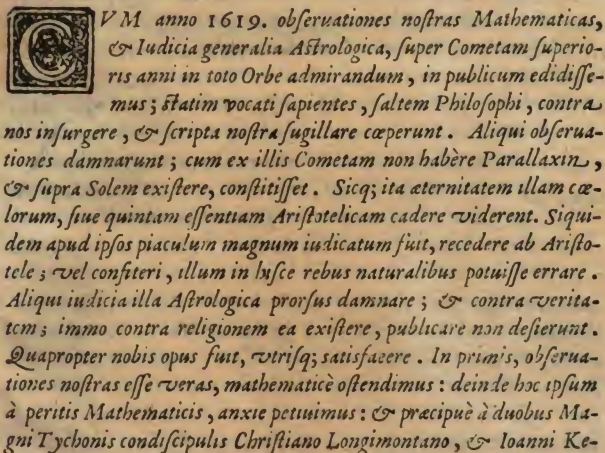 CVM anno 1619. obſeruationes noſtras Mathematicas,
& Iudicia generalia Aſtrologica, ſuper Cometam ſuperio-
ris anni in toto Orbe admirandum, in publicum edidiſſe-
mus; ſtatim vocati ſapientes, ſaltem Philoſophi, contra
nos inſurgere, & ſcripta noſtra ſugillare cœperunt. Aliqui obſerua-
tiones damnarunt; cum ex illis Cometam non habère Parallaxin,
& ſupra Solem exiſtere, conſtitiſſet. Sicq; ita æternitatem illam cœ-
lorum, ſiue quintam eſſentiam Ariſtotelicam cadere viderent. Siqui-
dem apud ipſos piaculum magnum iudicatum fuit, recedere ab Ariſto-
tele; vel confiteri, illum in huſce rebus naturalibus potuiſſe errare.
Aliqui iudicia illa Aſtrologica prorſus damnare; & contra verita-
tem; immo contra religionem ea exiſtere, publicare non deſierunt.
Quapropter nobis opus fuit, vtriſq; satisfacere. In primis, obſerua-
tiones noſtras eſſe veras, mathematicè oſtendimus: deinde hoc ipſum
à peritis Mathematicis, anxie petiuimus: & præcipuè à duobus Ma-
gni Tychonis condiſcipulis Chriſtiano Longimontano, & Ioanni Ke-